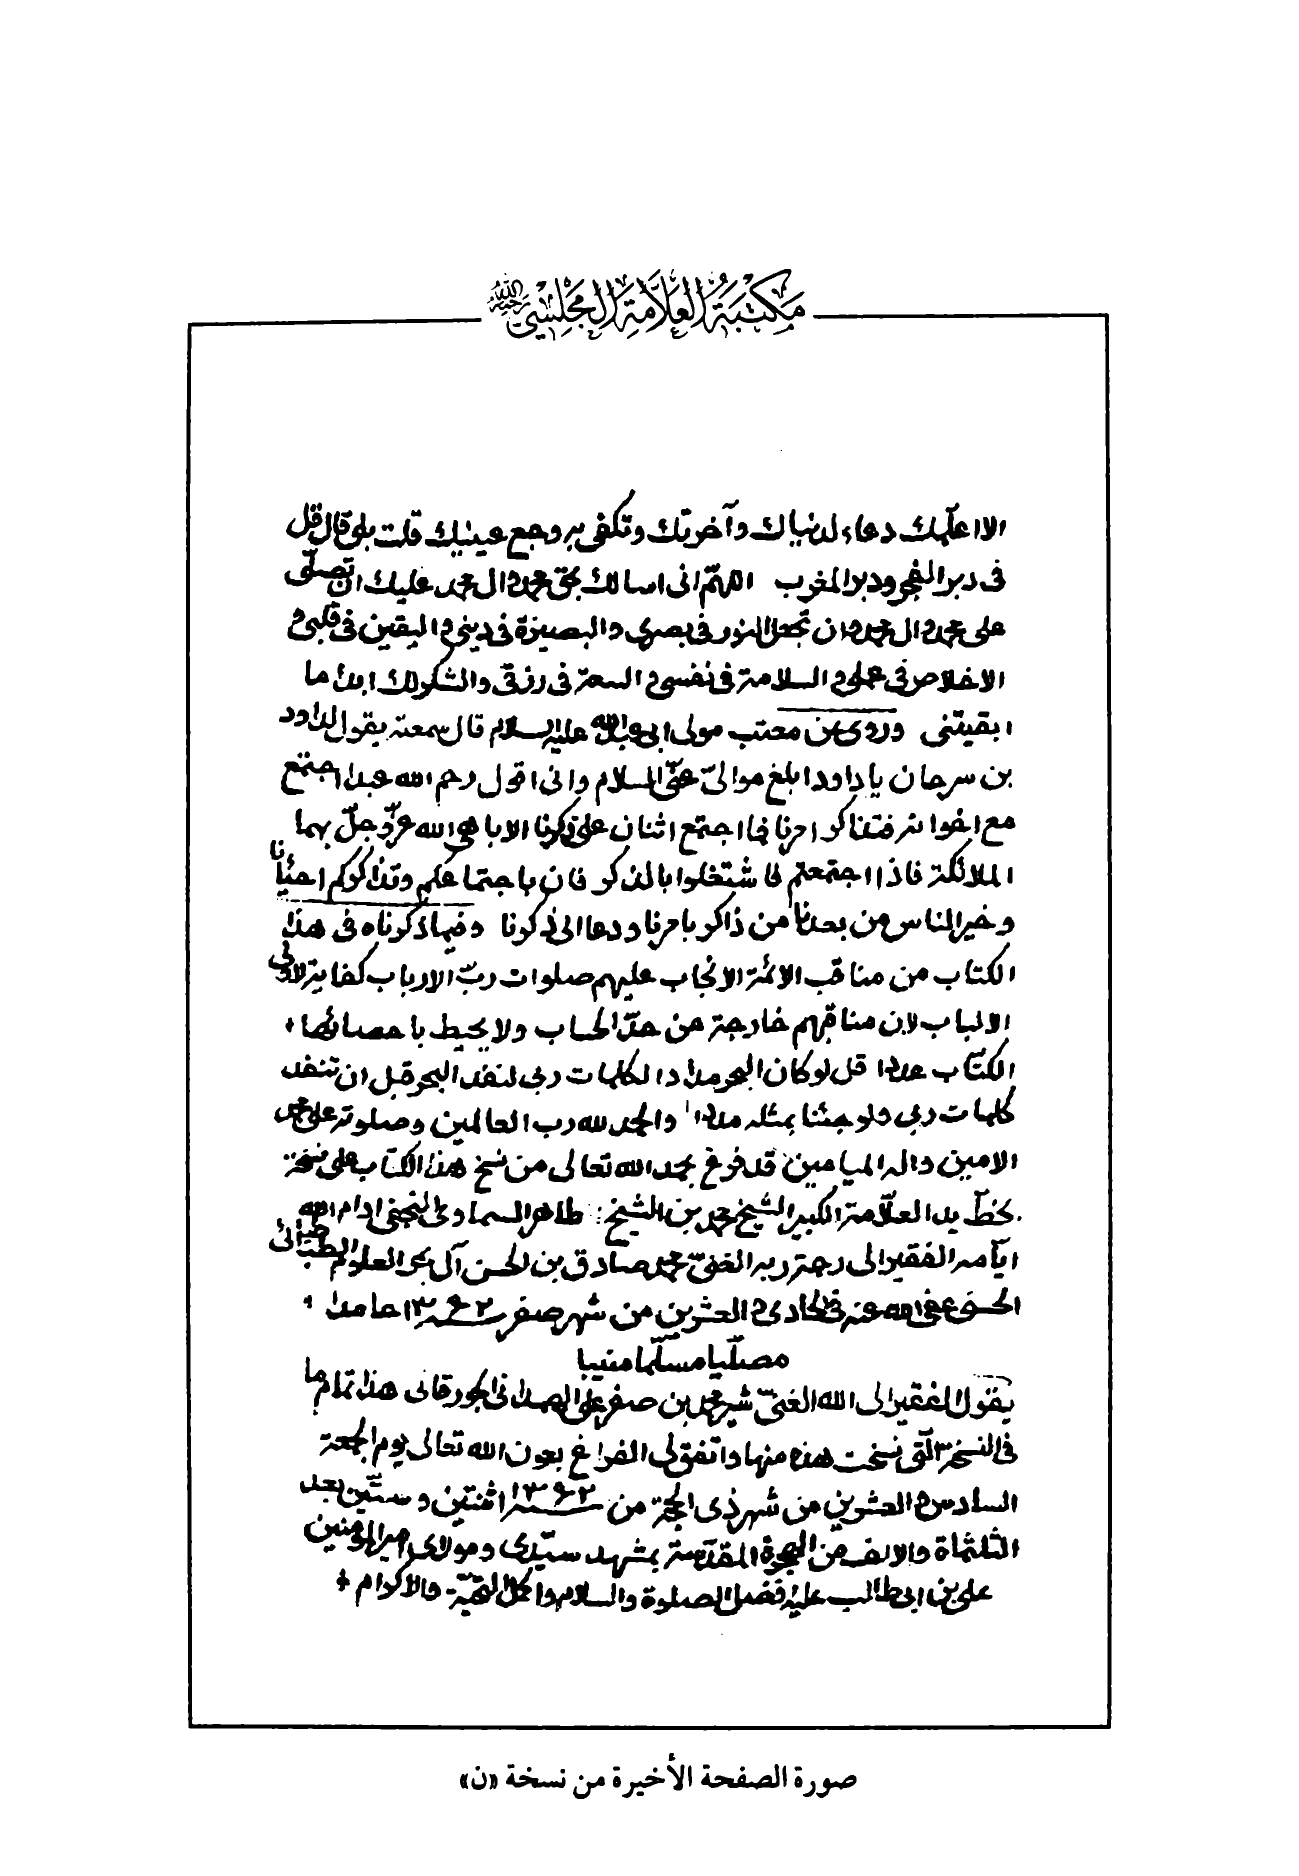 مكتبة العلامة المجلسي رحمه الله
الا اعلمك دعاء لدنياك وآخرتك وتكفى به وجع عينيك قلت بلى قال قل
فى دبر الفجر ودبر المغرب اللهم انى اسالك بحق محمد وال محمد عليك ان تصلّى
على محمد وال محمد وان تجعل النور فى بصرى والبصيرة فى دينى واليقين فى قلبى و
الاخلاص فى عملى والسلامة فى نفسى والسعة فى رزقى والشكر لك ابدا ما
ابقيتنى وروى عن معتب مولى ابى عبدالله عليه السلام قال سمعته يقول لداود
بن سرحان يا داود ابلغ موالىّ عنّى السلام وانى اقول رحم الله عبدا اجتمع
مع اخوانه فتذاكر امرنا فما اجتمع اثنان على ذكرنا الا باهى الله عزّ وجلّ بهما
الملائكة فاذا اجتمعتم فاشتغلوا بالذكر فان باجتماعكم وتذاكركم احيائنا
وخير الناس من بعدنا من ذاكر بامرنا ودعا الى ذكرنا وفيما ذكرناه فى هذا
الكتاب من مناقب الائمة الانجاب عليهم صلوات ربّ الارباب كفاية لاولى
الالباب لان مناقبهم خارجة من حدّ الحساب ولا يحيط باحصائها
الكتّاب عددا قل لو كان البحر مدادا لكلمات ربى لنفد البحر قبل ان تنفد
كلمات ربى ولو جئنا بمثله مددا والحمد لله رب العالمين وصلوته على محمد
الامين واله الميامين قد فرغ بحمد الله تعالى من نسخ هذا الكتاب على نسخة
بخطّ يد العلّامة الكبير الشيخ محمد بن الشيخ طاهر السماوى النجفى ادام الله
ايّامه الفقير الى رحمة ربه الغنىّ محمد صادق بن الحسن آل بحر العلوم الطباطبائى
الحسنى عفى الله عنه فى الحادى والعشرين من شهر صفر ١٣٦٢ حامدا
مصلّيا مسلّما منيبا
يقول الفقير الى الله الغنىّ شير محمد بن صفر على الهمدانى الجورقانى هذا تمام ما
فى النسخة التى نسخت هذه منها واتفق لى الفراغ بعون الله تعالى يوم الجمعة
السادس والعشرين من شهر ذى الحجة من ١٣٦٢ اثنتين وستّين بعد
الثلثمائة والالف من الهجرة المقدّسة بمشهد سيّدى ومولاى امير المؤمنين
على بن ابى طالب عليه افضل الصلوة والسلام واكمل التحيّة والاكرام
صورة الصفحة الأخيرة من نسخة «ن»